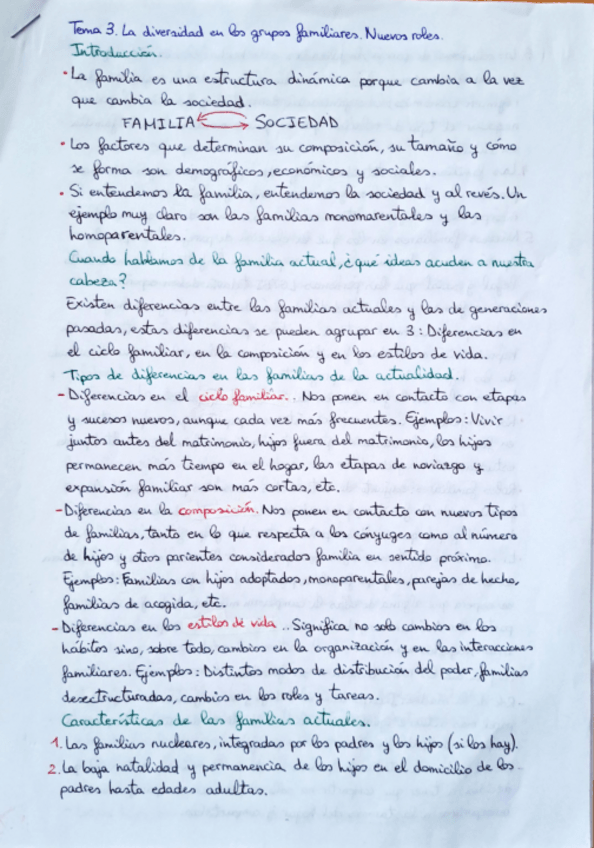 Tema 3. La diversidad en los grupos familiares. Nuevos roles.
Introducción.
· La familia es una estructura dinámica porque cambia a la vez
que cambia la sociedad.
FAMILIA SOCIEDAD
· Los factores que determinan su composición, su tamaño y cómo
se forma son demográficos, económicos y sociales.
· Si entendemos la familia, entendemos la sociedad y al revés. Un
ejemplo muy claro son las familias monomarentales y las
homoparentales.
Cuando hablamos de la familia actual, ¿qué ideas acuden a nuestra
cabeza?
Existen diferencias entre las familias actuales y las de generaciones
pasadas, estas diferencias se pueden agrupar en 3: Diferencias en
el ciclo familiar, en la composición y en los estilos de vida.
Tipos de diferencias en las familias de la actualidad.
- Diferencias en el ciclo familiar.. Nos ponen en contacto con etapas
y sucesos nuevos, aunque cada vez más frecuentes. Ejemplos: Vivir
juntos antes del matrimonio, hijos fuera del matrimonio, los hijos
permanecen más tiempo en el hogar, las etapas de noviazgo y
expansión familiar son más cortas, etc.
- Diferencias en la composición. Nos ponen en contacto con nuevos tipos
de familias, tanto en lo que respecta a los cónyuges como al número
de hijos y otros parientes considerados familia en sentido próximo.
Ejemplos: Familias con hijos adoptados, monoparentales, parejas de hecho,
familias de acogida, etc.
- Diferencias en los estilos de vida.. Significa no solo cambios en los
hábitos sino, sobre todo, cambios en la organización y en las interacciones
familiares. Ejemplos: Distintos modos de distribución del poder, familias
desectructuradas, cambios en los roles y tareas.
Características de las familias actuales.
1. Las familias nucleares, integradas por los padres y los hijos (si los hay).
2. La baja natalidad y permanencia de los hijos en el domicilio de los
padres hasta edades adultas.